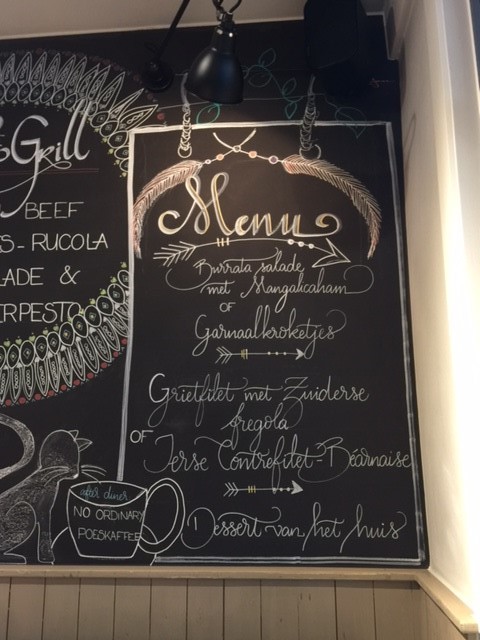 Grill
BEEF
S-RUCOLA
LADE &
ERPESTO
Menu
Burrata salade
met Mangalicaham
OF
Garnaalkroketjes
Grietfilet met Zuiderse
fregola
OF
Ierse Contrefilet-Béarnaise
Dessert van het huis
after diner
NO ORDINARY
POESKAFFEE